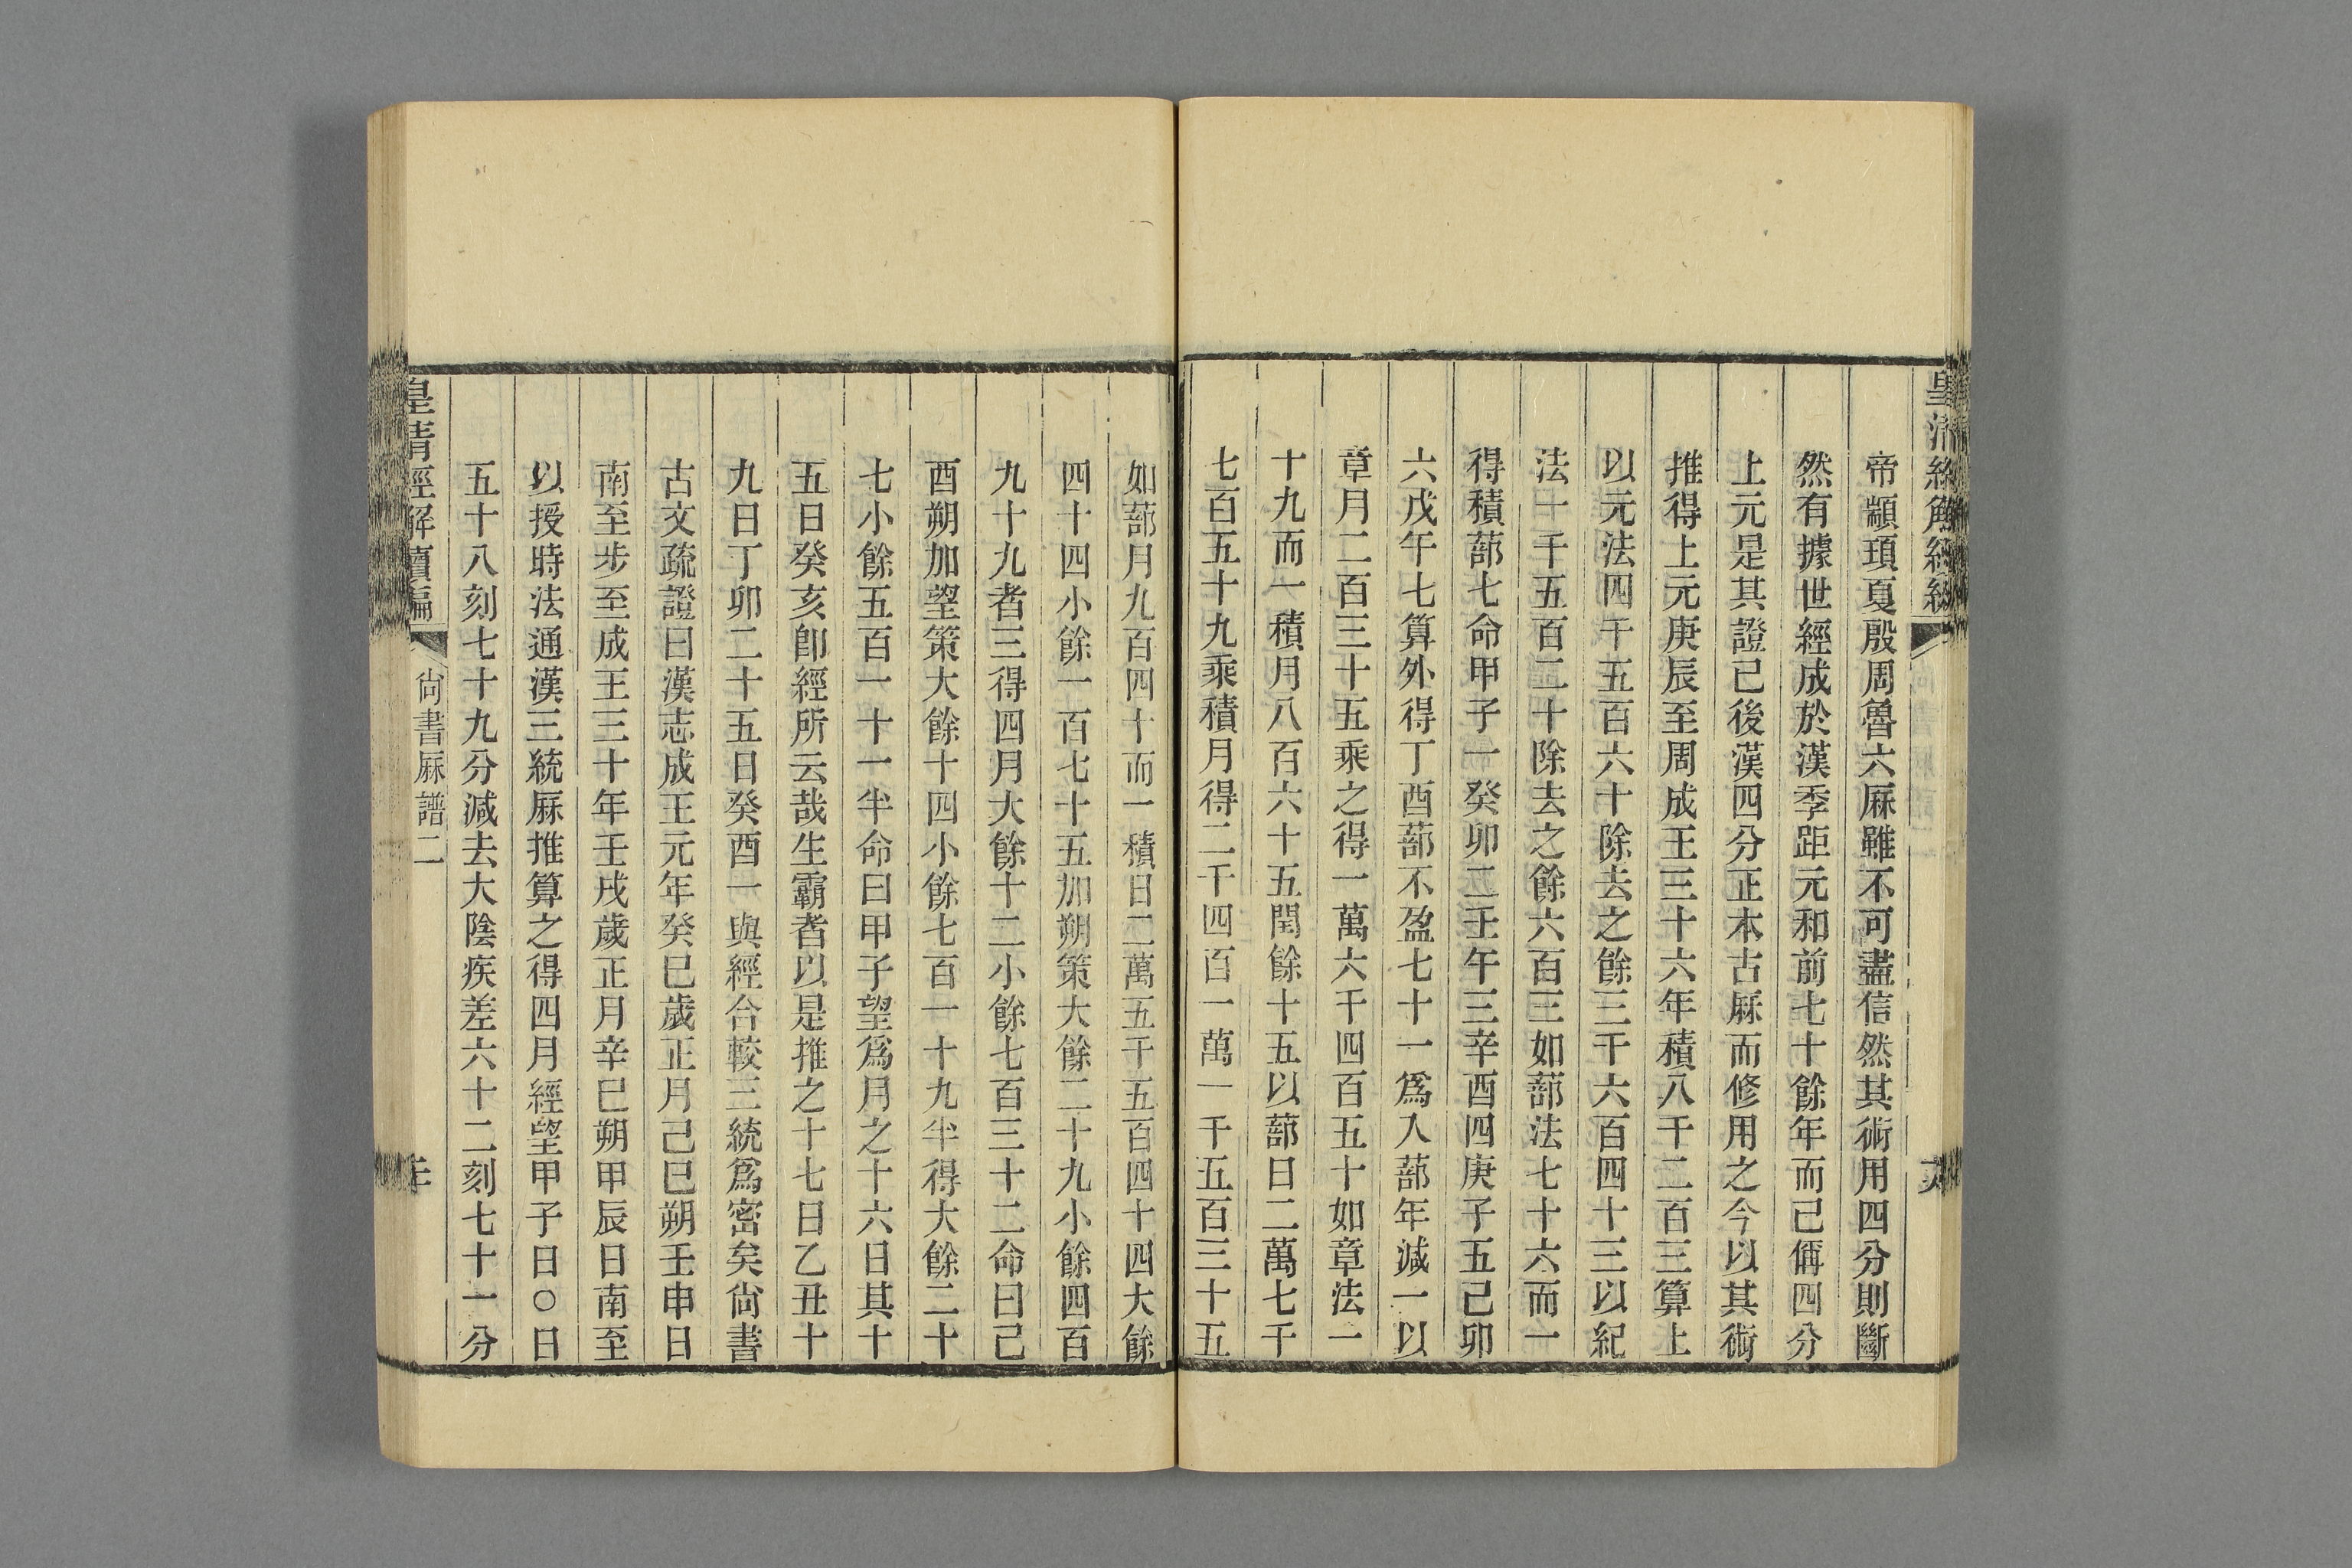 帝顓頊夏殷周魯六厤雖不可盡信然其術用四分則斷
然有據世經成於漢季距元和前七十餘年而已偁四分
上元是其證已後漢四分正本古厤而修用之今以其術
推得上元庚辰至周成王三十六年積八千二百三算上
以元法四千五百六十除去之餘三千六百四十三以紀
法一千五百二十除去之餘六百三如蔀法七十六而一
得積蔀七命甲子一癸卯二壬午三辛酉四庚子五己卯
六戊午七算外得丁酉蔀不盈七十一爲入蔀年減一以
章月二百三十五乘之得一萬六千四百五十如章法一
十九而一積月八百六十五閏餘十五以蔀日二萬七千
七百五十九乘積月得二千四百一萬一千五百三十五
如蔀月九百四十而一積日二萬五千五百四十四大餘
四十四小餘一百七十五加朔策大餘二十九小餘四百
九十九者三得四月大餘十二小餘七百三十二命曰己
酉朔加望策大餘十四小餘七百一十九半得大餘二十
七小餘五百一十一半命曰甲子望爲月之十六日其十
五日癸亥卽經所云哉生霸者以是推之十七日乙丑十
九日丁卯二十五日癸酉一與經合較三統爲密矣尙書
古文疏證曰漢志成王元年癸巳歲正月己巳朔壬申日
南至步至成王三十年壬戌歲正月辛巳朔甲辰日南至
以授時法通漢三統厤推算之得四月經望甲子日○日
五十八刻七十九分減去大陰疾差六十二刻七十一分
皇清經解續編
尙書厤譜二